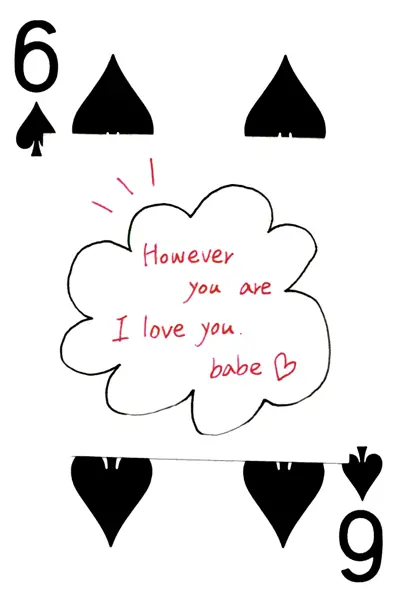 6
However
you are
I love you.
babe ♡
6